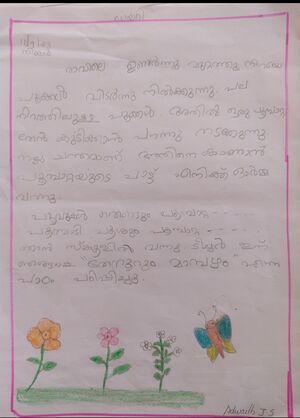 ഡയറി
രാവിലെ ഉണർന്നു മുറ്റത്തു നിറയെ
പൂക്കൾ വിടർന്നു നിൽക്കുന്നു. പല
നിറത്തിലുള്ള പൂക്കൾ. അതിൽ ഒരു പൂമ്പാറ്റ
തേൻ കുടിക്കാൻ പറന്നു നടക്കുന്നു
നല്ല ചന്തമാണ് അതിനെ കാണാൻ
പൂമ്പാറ്റയുടെ പാട്ട് എനിക്ക് ഓർമ്മ
വന്നു.
പൂവുകൾ തെണ്ടും പൂമ്പാറ്റ - - - - -
പൂമ്പാറ്റ - - - -
ഞാൻ സ്കൂളിൽ വന്നു ടീച്ചർ ഇന്ന്
"തേനൂറും മാമ്പഴം" എന്ന
പാഠം പഠിപ്പിച്ചു.
Adwaith J.S